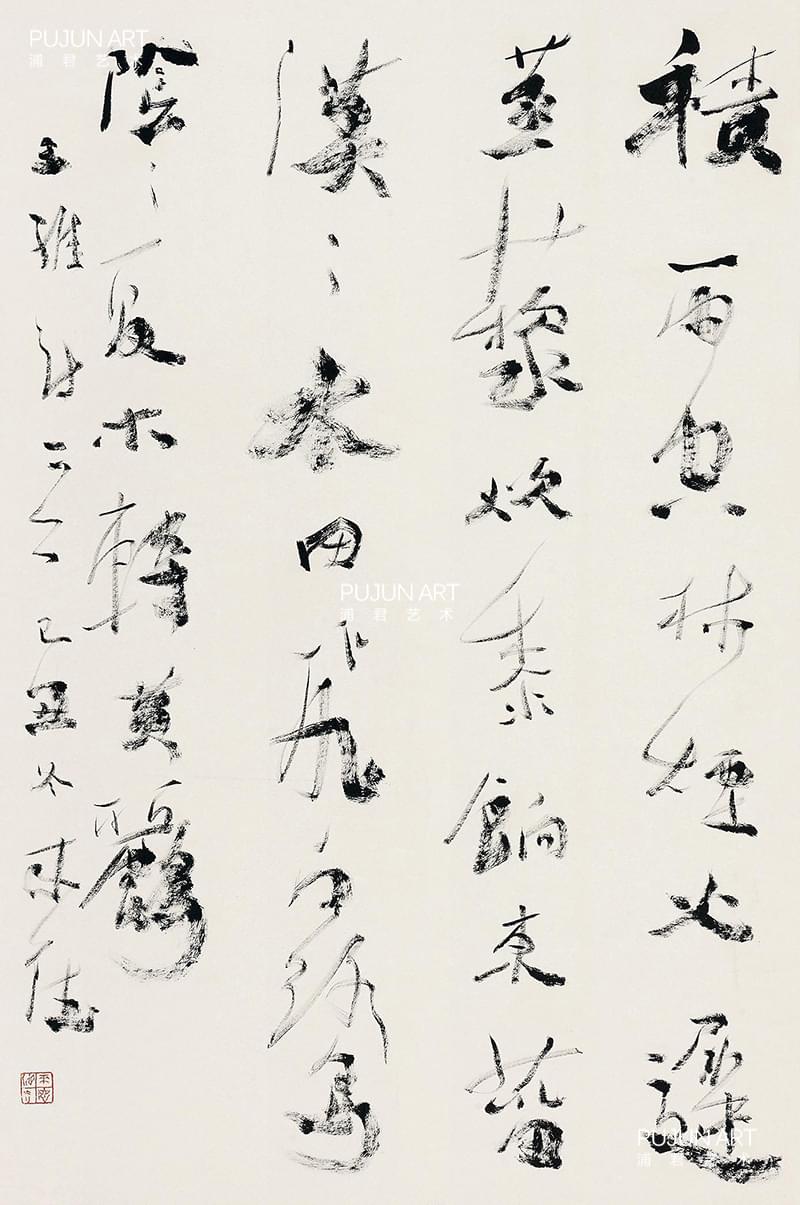 積雨空林煙火遲
蒸藜炊黍餉東菑
漠〻水田飛白鷺
陰〻夏木轉黃鸝
王維詩 己丑冬
PUJUN ART
浦君艺术
PUJUN ART
浦君艺术
PUJUN ART
浦君艺术